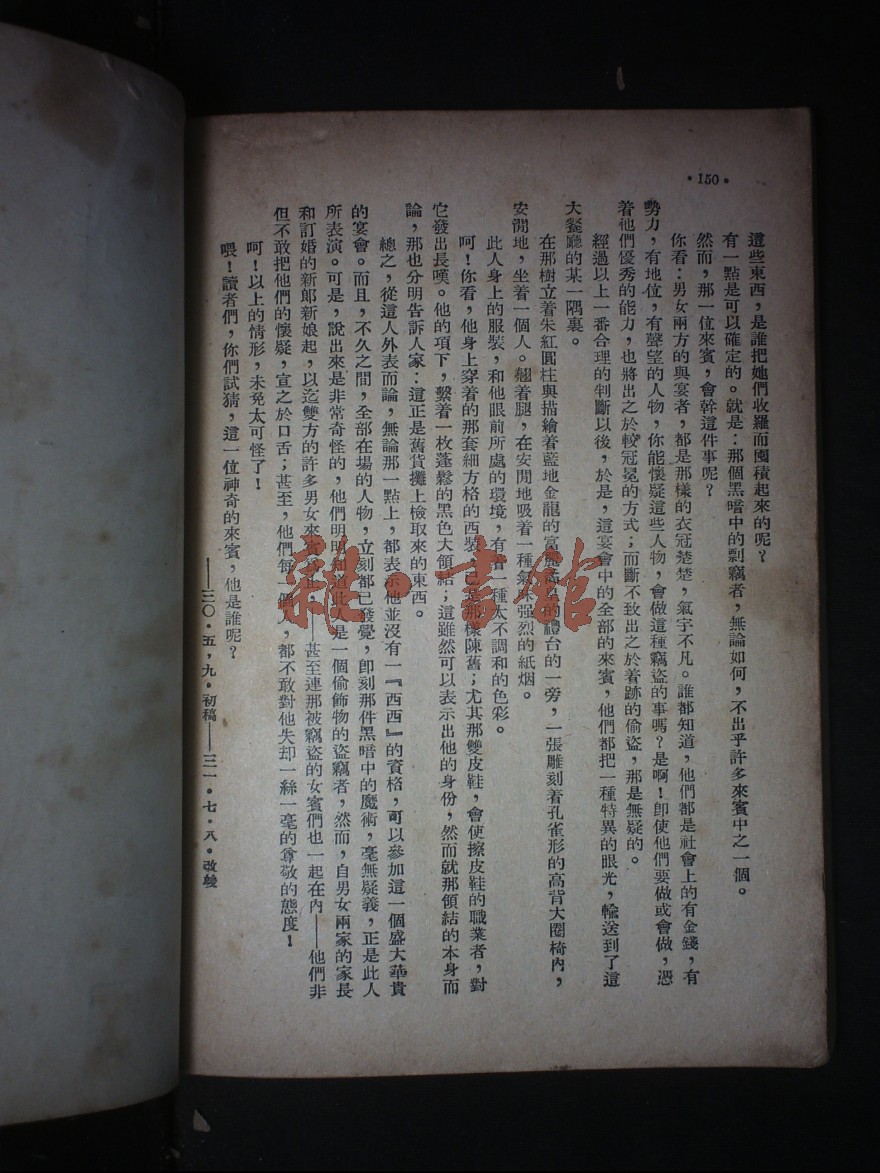 •150•
這些東西，是誰把她們收羅而囤積起來的呢？
有一點是可以確定的。就是：那個黑暗中的剽竊者，無論如何，不出乎許多來賓中之一個。
然而，那一位來賓，會幹這件事呢？
你看：男女兩方的與宴者，都是那樣的衣冠楚楚，氣宇不凡。誰都知道，他們都是社會上的有金錢，有
勢力，有地位，有聲望的人物，你能懷疑這些人物，會做這種竊盜的事嗎？是啊！即使他們要做或會做，憑
着他們優秀的能力，也將出之於較冠冕的方式；而斷不致出之於着跡的偷盜，那是無疑的。
經過以上一番合理的判斷以後，於是，這宴會中的全部的來賓，他們都把一種特異的眼光，輸送到了這
大餐廳的某一隅裏。
在那樹立着朱紅圓柱與描繪着藍地金龍的富麗的禮台的一旁，一張雕刻着孔雀形的高背大圈椅內，
安閒地，坐着一個人。翹着腿，在安閒地吸着一種氣味强烈的紙烟。
此人身上的服裝，和他眼前所處的環境，有着一種太不調和的色彩。
呵！你看，他身上穿着的那套細方格的西裝，已是那樣陳舊；尤其那雙皮鞋，會使擦皮鞋的職業者，對
它發出長嘆。他的項下，繫着一枚蓬鬆的黑色大領結；這雖然可以表示出他的身份，然而就那領結的本身而
論，那也分明告訴人家：這正是舊貨攤上檢取來的東西。
總之，從這人外表而論，無論那一點上，都表示他並沒有一『西西』的資格，可以參加這一個盛大華貴
的宴會。而且，不久之間，全部在場的人物，立刻都已發覺，卽刻那件黑暗中的魔術，毫無疑義，正是此人
所表演。可是，說出來是非常奇怪的，他們明明知道此人是一個偷飾物的盜竊者，然而，自男女兩家的家長
和訂婚的新郎新娘起，以迄雙方的許多男女來賓爲止，——甚至連那被竊盜的女賓們也一起在內——他們非
但不敢把他們的懷疑，宣之於口舌；甚至，他們每一個人，都不敢對他失却一絲一毫的尊敬的態度！
呵！以上的情形，未免太可怪了！
喂！讀者們，你們試猜，這一位神奇的來賓，他是誰呢？
——三〇・五，九・初稿——三一・七・八・改竣
雜・書館